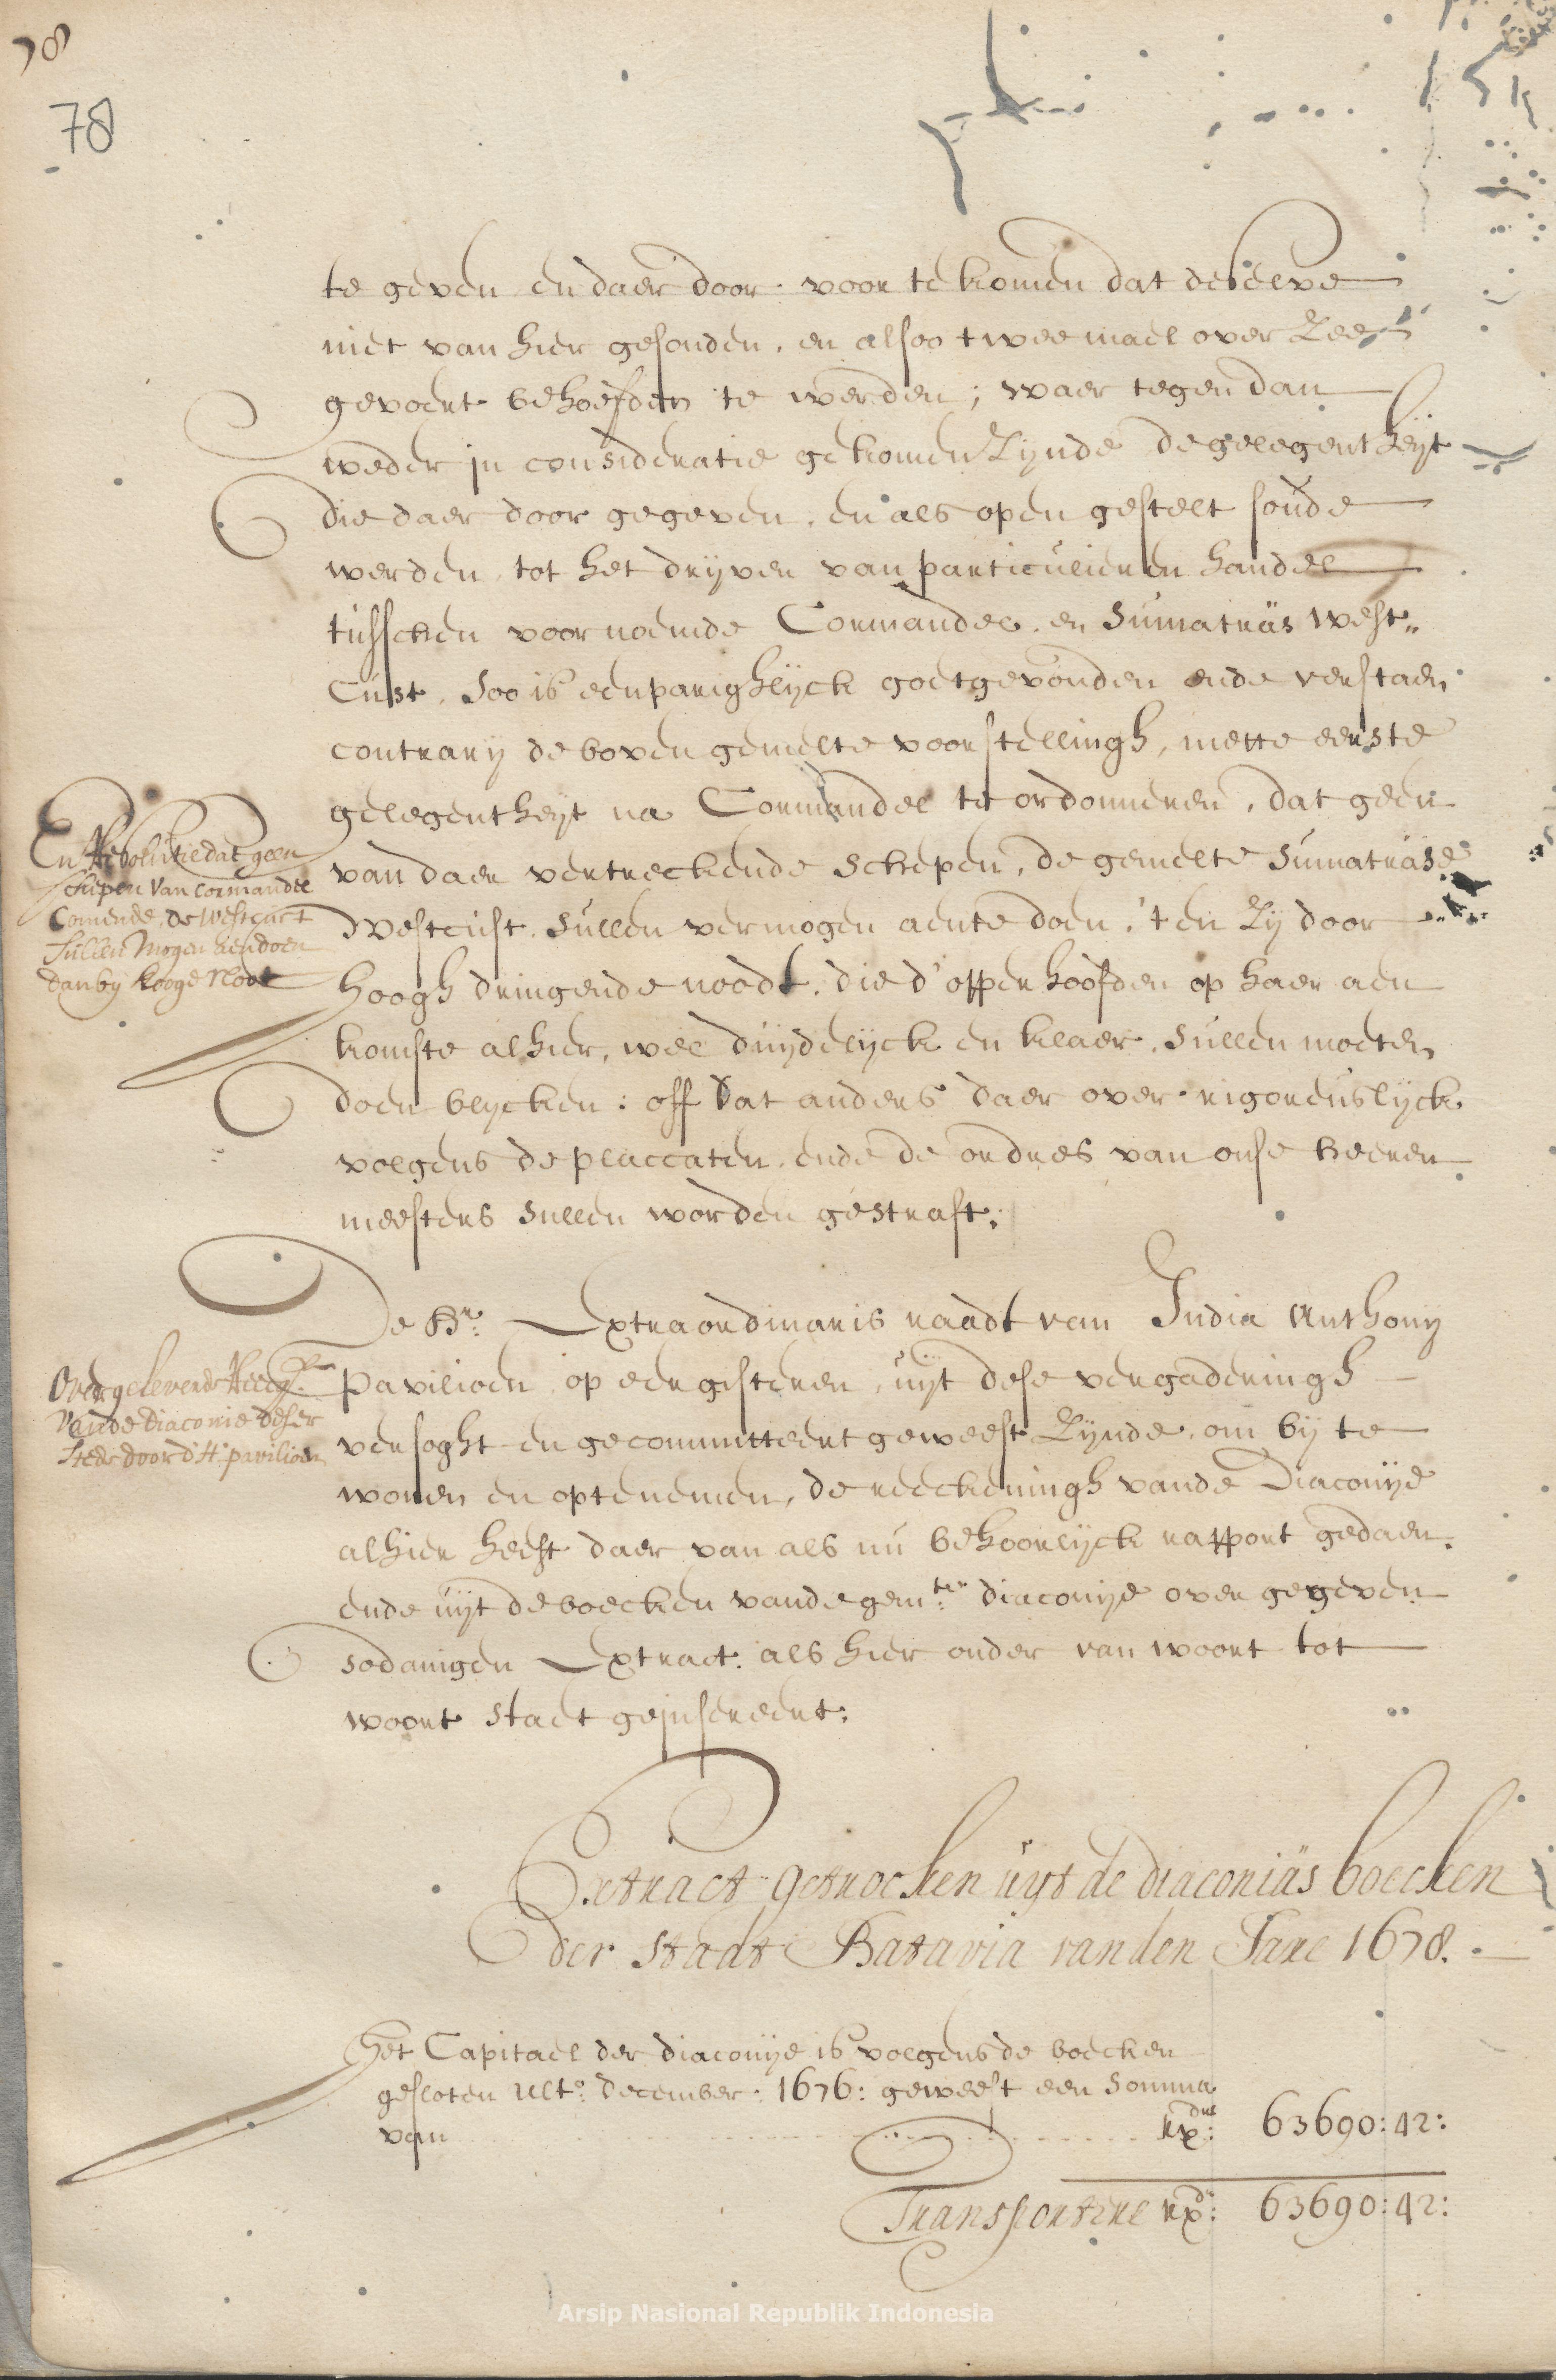 78
78
te geven en daer door voor te komen dat deselve
niet van hier gesonden, en alsoo tweemael over Zee
gevoert behoefden te werden; waer tegen dan
weder in consideratie gekomen Zijnde de gelegentheijt
die daer door gegeven, en als open gestelt soude
werden, tot het drijven van particulieren handel
tusschen voornoemde Cormandel en Sumatras west„
Cust, Soo is eenparighlijck goetgevonden ende verstaen
contrarij de bovengemelte voorstellingh, mette eerste
gelegentheijt na Cormandel te ordonneren, dat geen
van daer vertreckende Schepen, de gemelte Sumatrase
Westcust, Sullen vermogen aente doen, 't en Zij door
hoogh dringende noodt, die d'opperhoofden op haer aen
komste alhier, wel duijdelijck en klaer, Sullen moeten
doen blijcken: off dat anders daer over rigoreuslijck
volgens de placcaten, ende de ordres van onse heeren
meesters Sullen worden gestraft;
En Resolutie dat geen
schepen van Cormandel
Comende, de Westcust
Sullen Mogen aendoen
dan bij hooge Noot
De Hr: Extraordinaris raadt van India Anthonij
Pavilioen, op eergisteren, uijt dese vergaderingh
versoght en gecommitteert geweest Zijnde, om bij te
wonen en optenemen, de reeckeningh vande Diaconije
alhier heeft daer van als nu behoorlijck rapport gedaen,
ende uijt de boecken vande gemte: diaconije over gegeven
sodanigen Extract, als hier onder van woort tot
woort staet geinsereert;
Overgeleverde Reecq.
Vande Diaconie deser
Stede door d'Hr pavilioen
Extract getrocken uijt de diaconias boecken
der Stadt Batavia van den Jare 1678.
Het Capitael der diaconije is volgens de boecken
gesloten Ulto: december: 1676: geweest een Somma
van rxdrs: 63690:42:
Transportere rxd: 63690:42:
Arsip Nasional Republik Indonesia